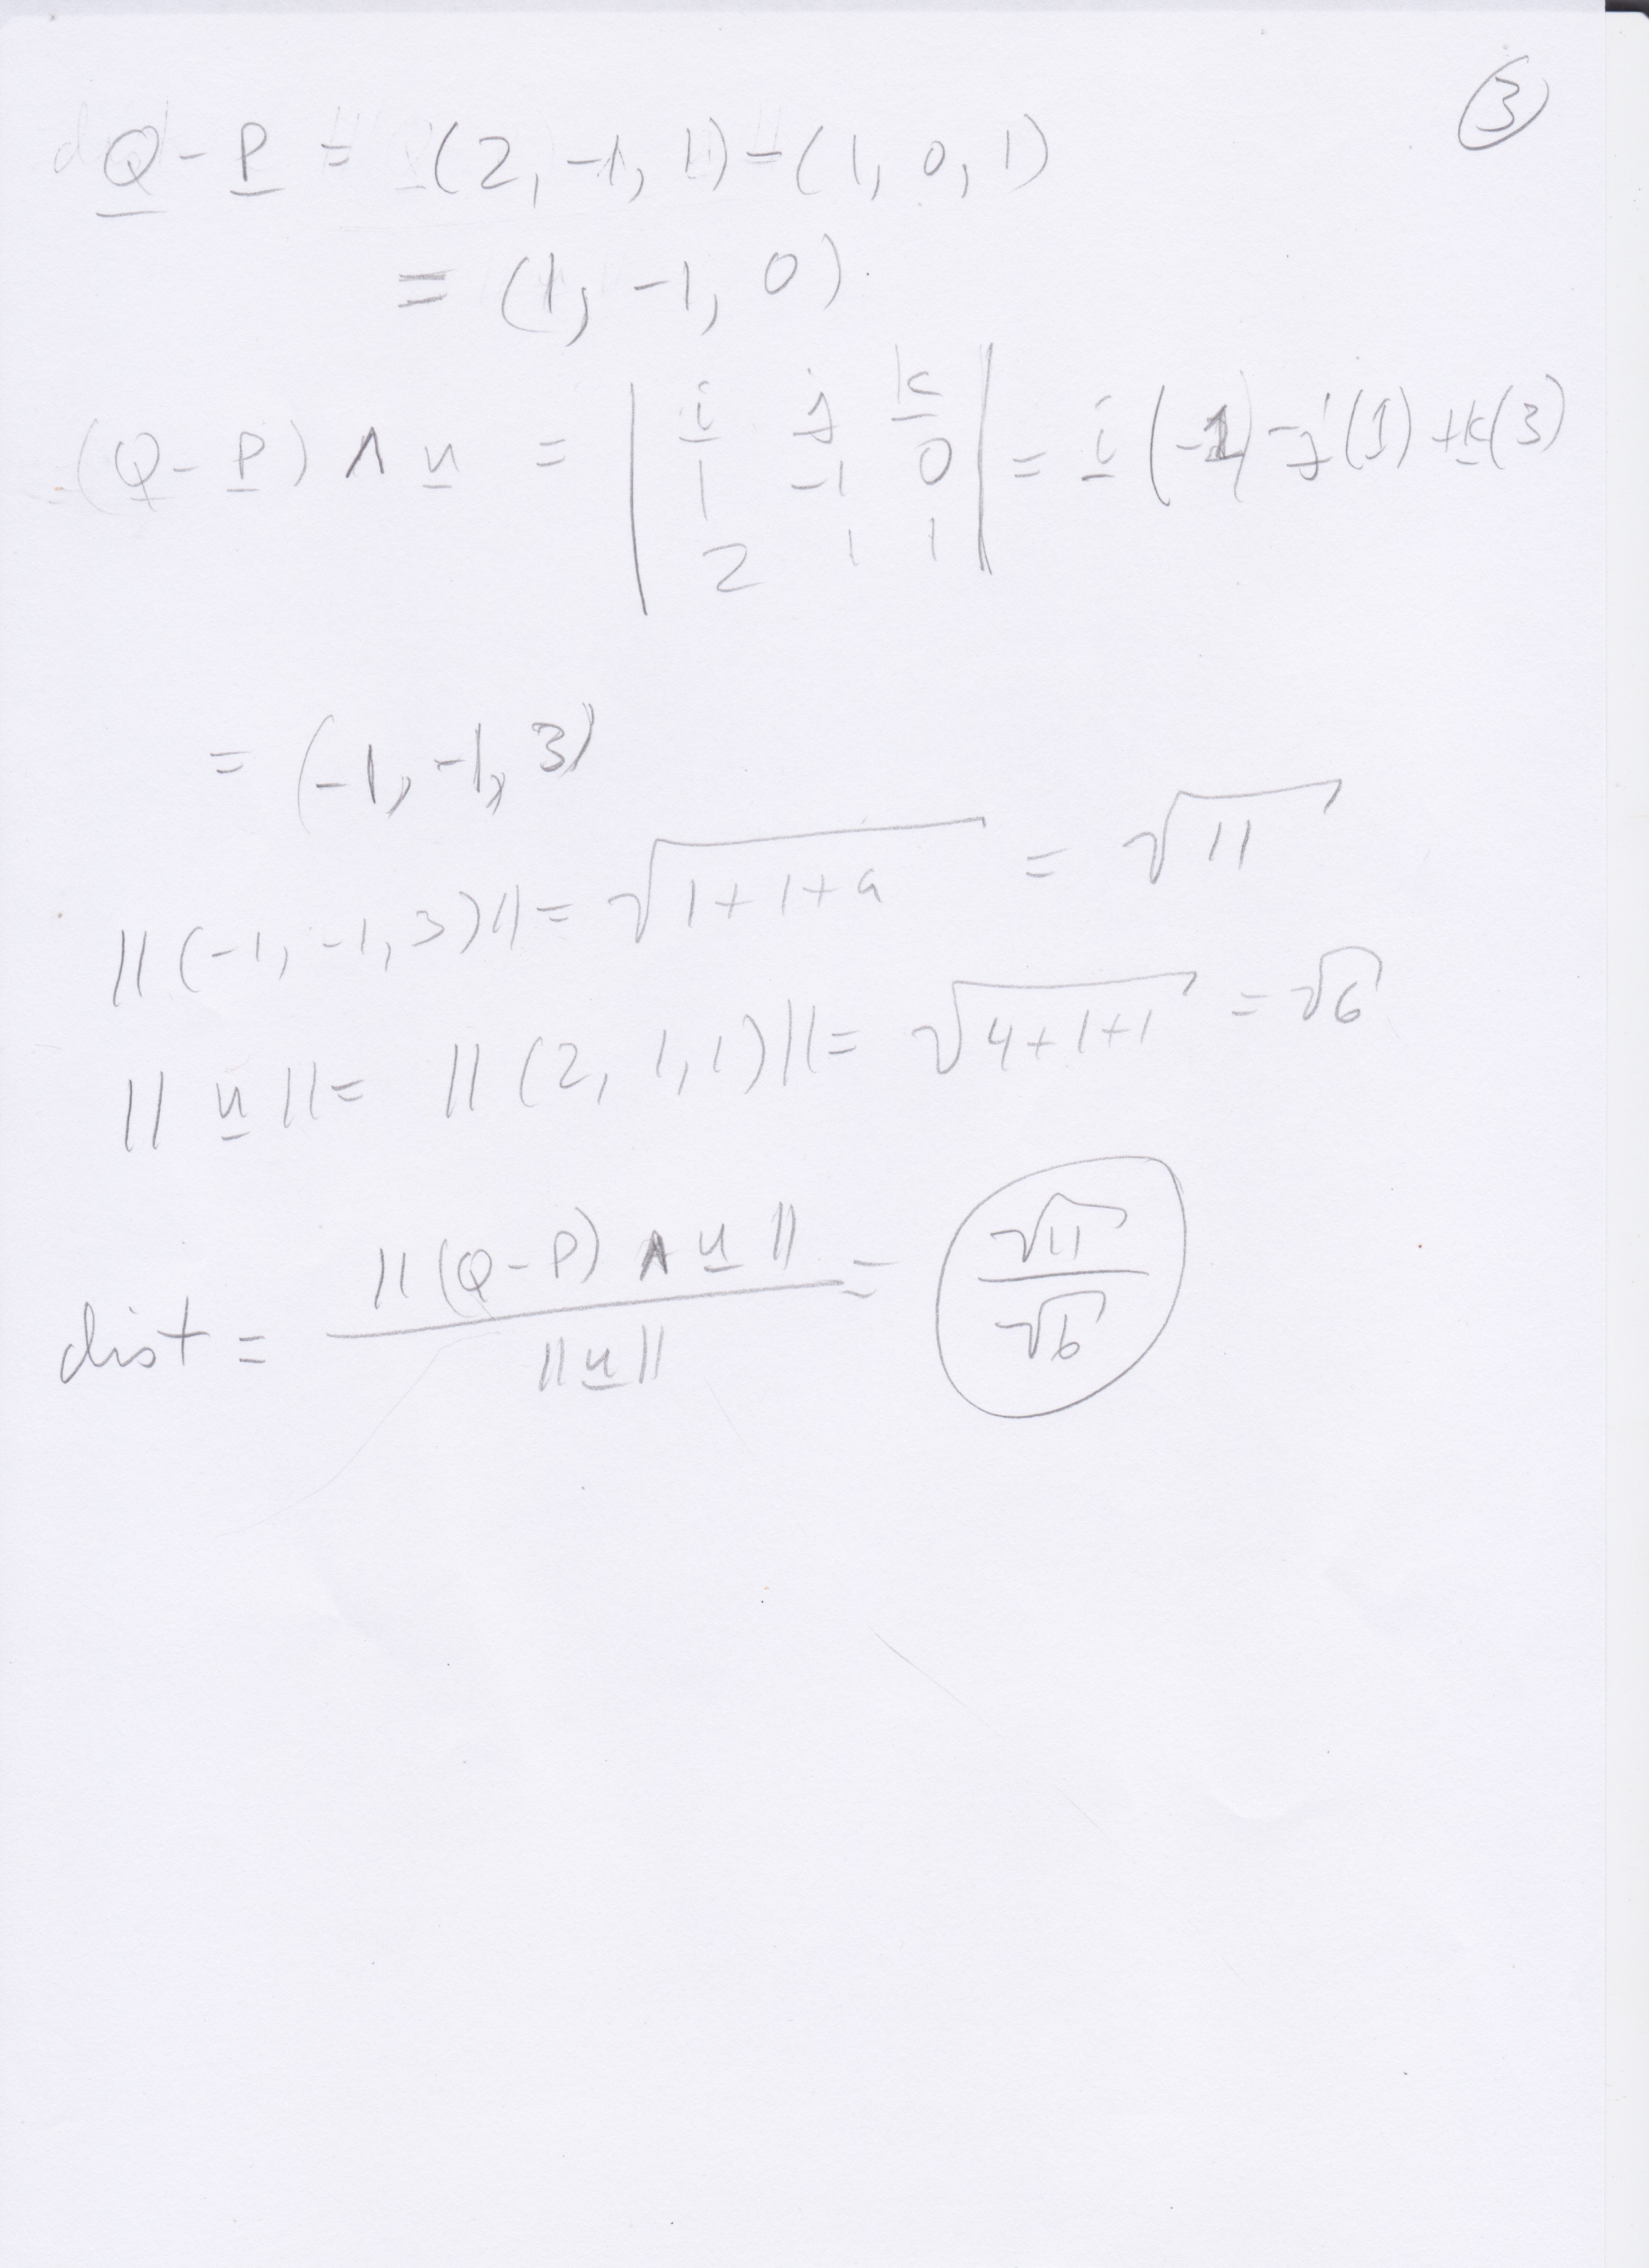 ③
Q - P = (2, -1, 1) - (1, 0, 1)
= (1, -1, 0)
(Q - P) ∧ u = | i j k | = i (-1) - j (1) + k (3)
1 -1 0
2 1 1
= (-1, -1, 3)
||(-1, -1, 3)|| = √1+1+9 = √11
|| u || = || (2, 1, 1) || = √4+1+1 = √6
dist = ||(Q-P) ∧ u || / ||u|| = √11 / √6